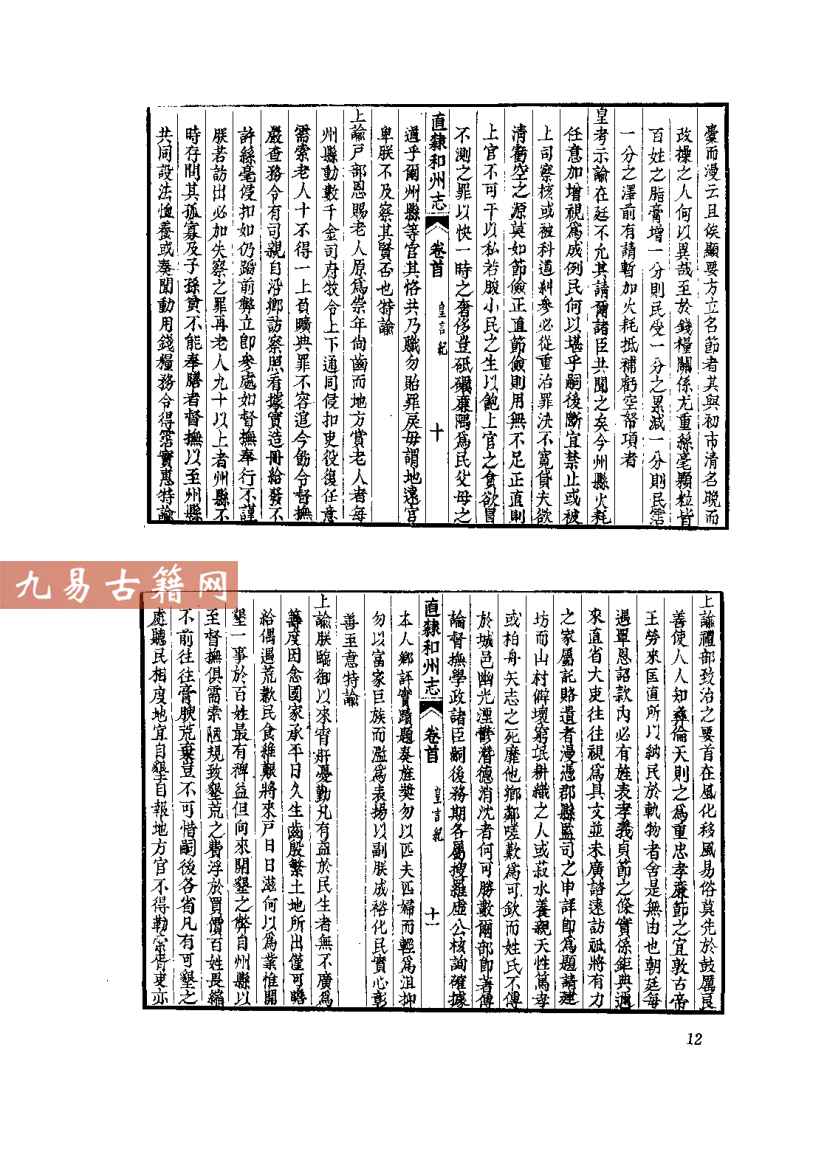 臺而漫云且俟顯要方立名節者其與初市清名晚而
政操之人何以異哉至於錢糧關係尤重絲毫顆粒皆
百姓之脂膏增一分則民受一分之累減一分則民霑
一分之澤前有請暫加火耗抵補虧空帑項者
皇考示諭在廷不允其請爾諸臣共聞之矣今州縣火耗
任意加增視為成例民何以堪乎嗣後斷宜禁止或被
上司察核或被科道糾參必從重治罪決不寬貸夫欲
清虧空之源莫如節儉正直節儉則用無不足正直則
上官不可干以私若朘小民之生以飽上官之貪欲冒
不測之罪以快一時之奢侈豈砥礪廉隅為民父母之
直隸和州志 卷首 皇言紀 十
道乎爾州縣等官其恪共乃職勿貽罪戾毋謂地遠官
卑朕不及察其賢否也特諭
上諭戶部恩賜老人原為崇年尚齒而地方賞老人者每
州縣動數千金司府牧令上下通同侵扣吏役復任意
需索老人十不得一上負曠典罪不容逭今飭令督撫
嚴查務令有司親自沿鄉訪察照看據實造冊給發不
許絲毫侵扣如仍蹈前弊立即參處如督撫奉行不謹
朕若訪出必加失察之罪再老人九十以上者州縣不
時存問其孤寡及子孫貧不能奉膳者督撫以至州縣
共同設法恤養或奏聞動用錢糧務令得霑實惠特諭
上諭禮部致治之要首在風化移風易俗莫先於鼓厲良
善使人人知彝倫天則之為重忠孝廉節之宜敦古帝
王勞來匡直所以納民於軌物者舍是無由也朝廷每
遇覃恩詔款內必有旌表孝義貞節之條實係鉅典邇
來直省大吏往往視為具文並未廣諮遠訪祗將有力
之家屬託賂遺者漫憑郡縣監司之申詳即為題請建
坊而山村僻壤窮氓耕織之人或菽水養親天性篤孝
或柏舟矢志之死靡他鄉鄰嗟歎為可欽而姓氏不傳
於城邑幽光湮鬱潛德消沈者何可勝數爾部即著傳
諭督撫學政諸臣嗣後務期各屬搜羅虛公核詢確據
直隸和州志 卷首 皇言紀 十一
本人鄉評實蹟題奏旌獎勿以匹夫匹婦而輕為沮抑
勿以富家巨族而濫為表揚以副朕成裕化民實心彰
善至意特諭
上諭朕臨御以來宵旰憂勤凡有益於民生者無不廣為
籌度因念國家承平日久生齒殷繁土地所出僅可贍
給偶遇荒歉民食維艱將來戶日日滋何以為業惟開
墾一事於百姓最有裨益但向來開墾之弊自州縣以
至督撫俱需索陋規致墾荒之費浮於買價百姓畏縮
不前往往膏腴荒棄豈不可惜嗣後各省凡有可墾之
處聽民相度地宜自墾自報地方官不得勒索胥吏亦
12
九易古籍网